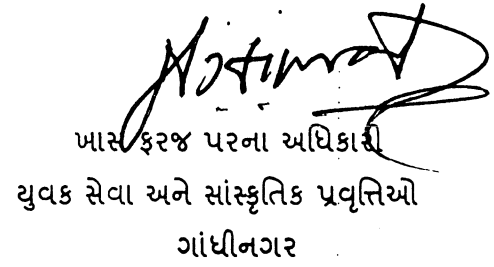 ખાસ ફરજ પરના અધિકારી
યુવક સેવા અને સાંસ્કૃતિક પ્રવૃત્તિઓ
ગાંધીનગર